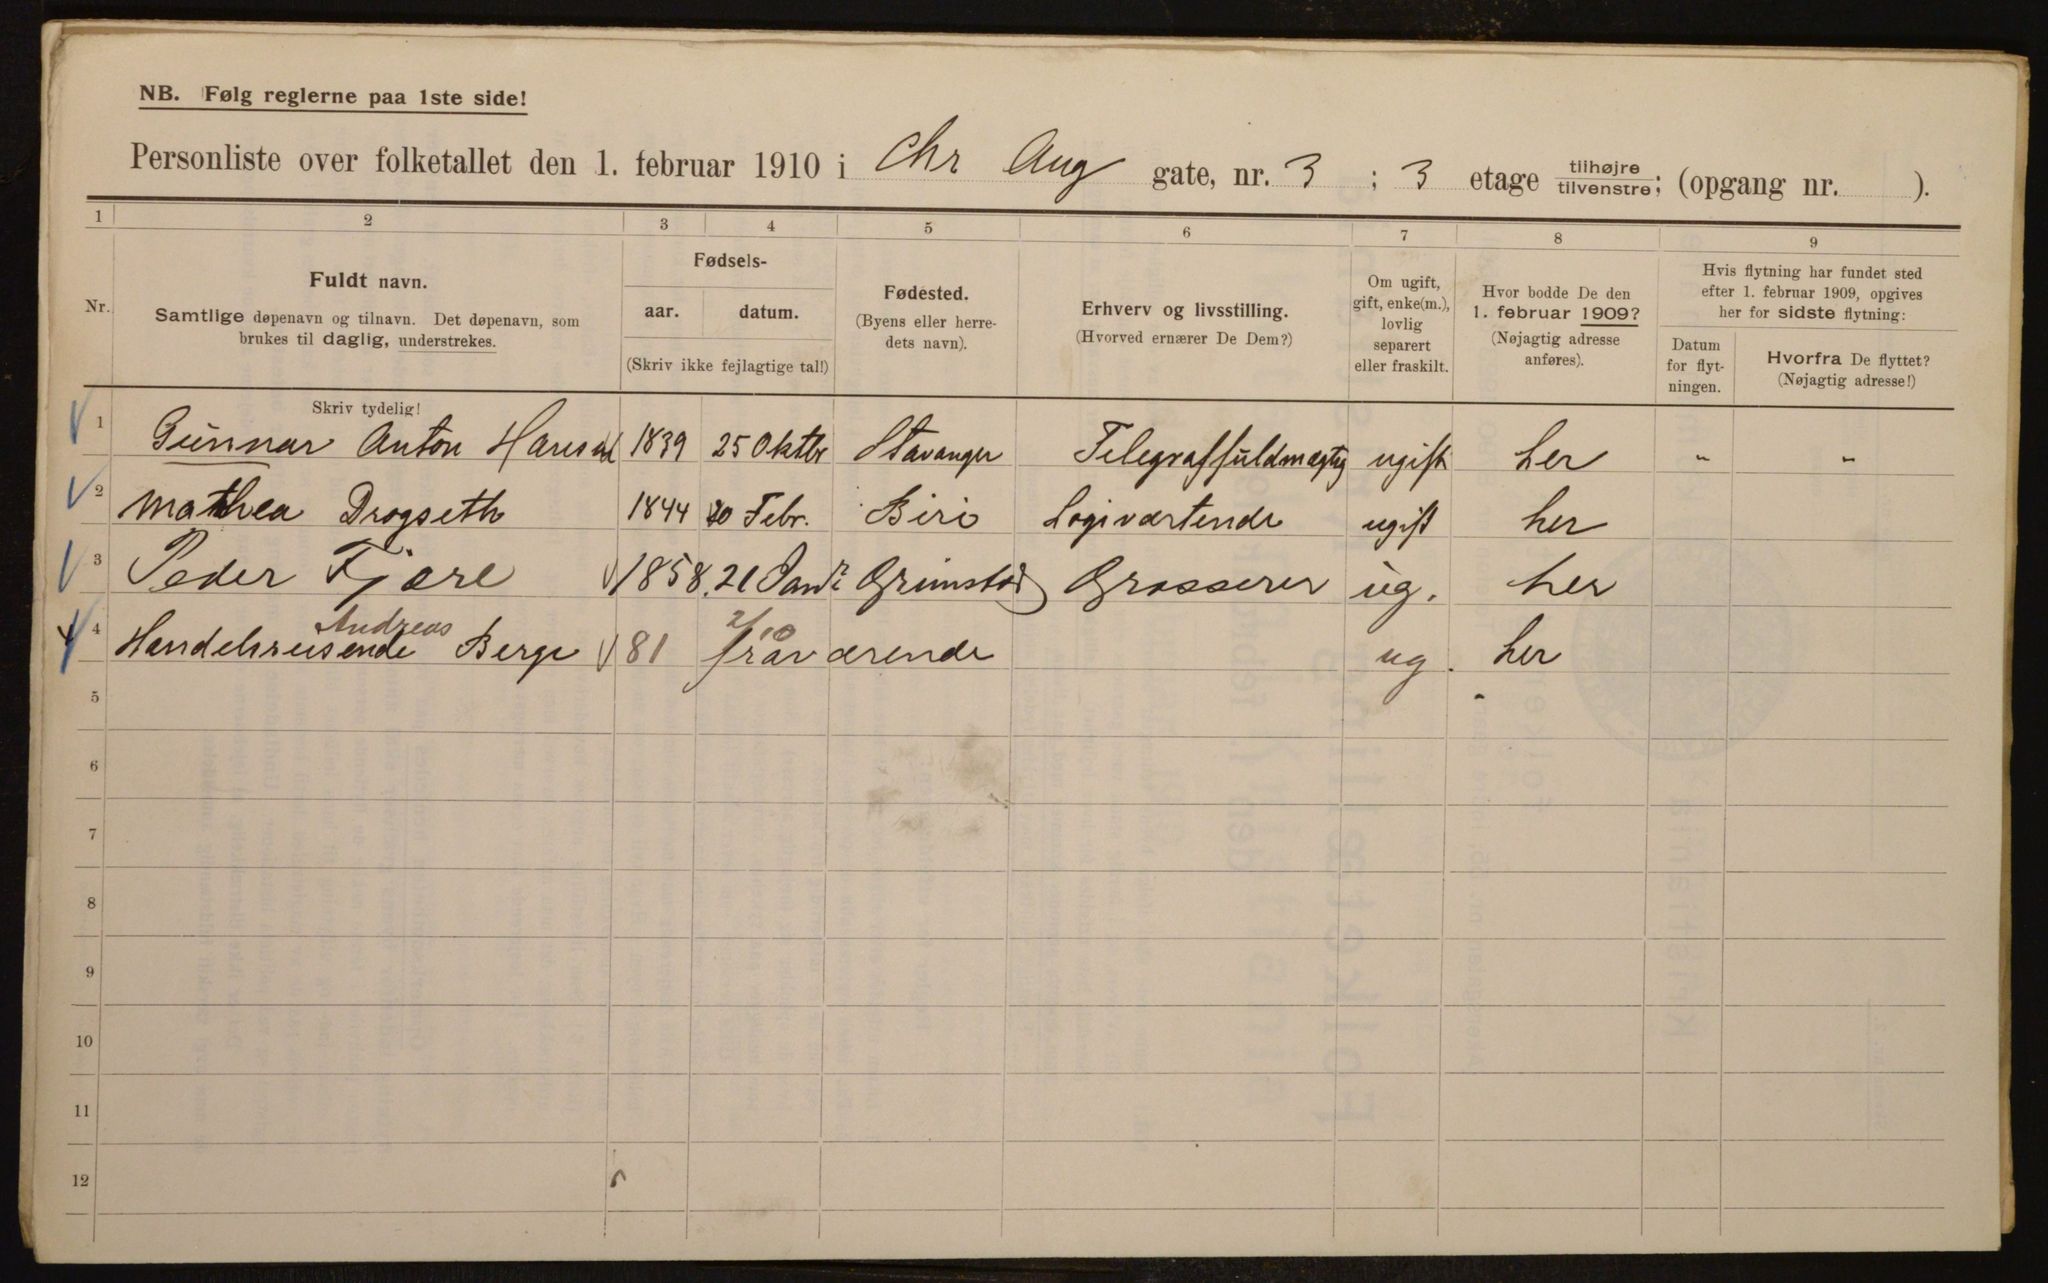 NB. Følg reglerne paa 1ste side!
Personliste over folketallet den 1. februar 1910 i Chr Aug gate, nr. 3 ; 3 etage tilhøjre/tilvenstre; (opgang nr. ).
1 2 3 4 5 6 7 8 9
Nr.
Fuldt navn.
Samtlige døpenavn og tilnavn. Det døpenavn, som
brukes til daglig, understrekes.
Fødsels-
aar. datum.
(Skriv ikke fejlagtige tal!)
Fødested.
(Byens eller herre-
dets navn).
Erhverv og livsstilling.
(Hvorved ernærer De Dem?)
Om ugift,
gift, enke(m.),
lovlig
separert
eller fraskilt.
Hvor bodde De den
1. februar 1909?
(Nøjagtig adresse
anføres).
Hvis flytning har fundet sted
efter 1. februar 1909, opgives
her for sidste flytning:
Datum
for flyt-
ningen.
Hvorfra De flyttet?
(Nøjagtig adresse!)
Skriv tydelig!
1 Gunnar Anton 1839 25 Oktbr Stavanger Telegraffuldmægtig ugift her " "
2 Mathea Drogseth 1844 20 Febr. Biri Logiværtinde ugift her
3 Peder Fjære 1858. 21 Grimstad Grosserer ug. her
Andreas 2/10
4 Handelsreisende Berge 81 fraværende ug. her
5
6
7
8
9
10
11
12